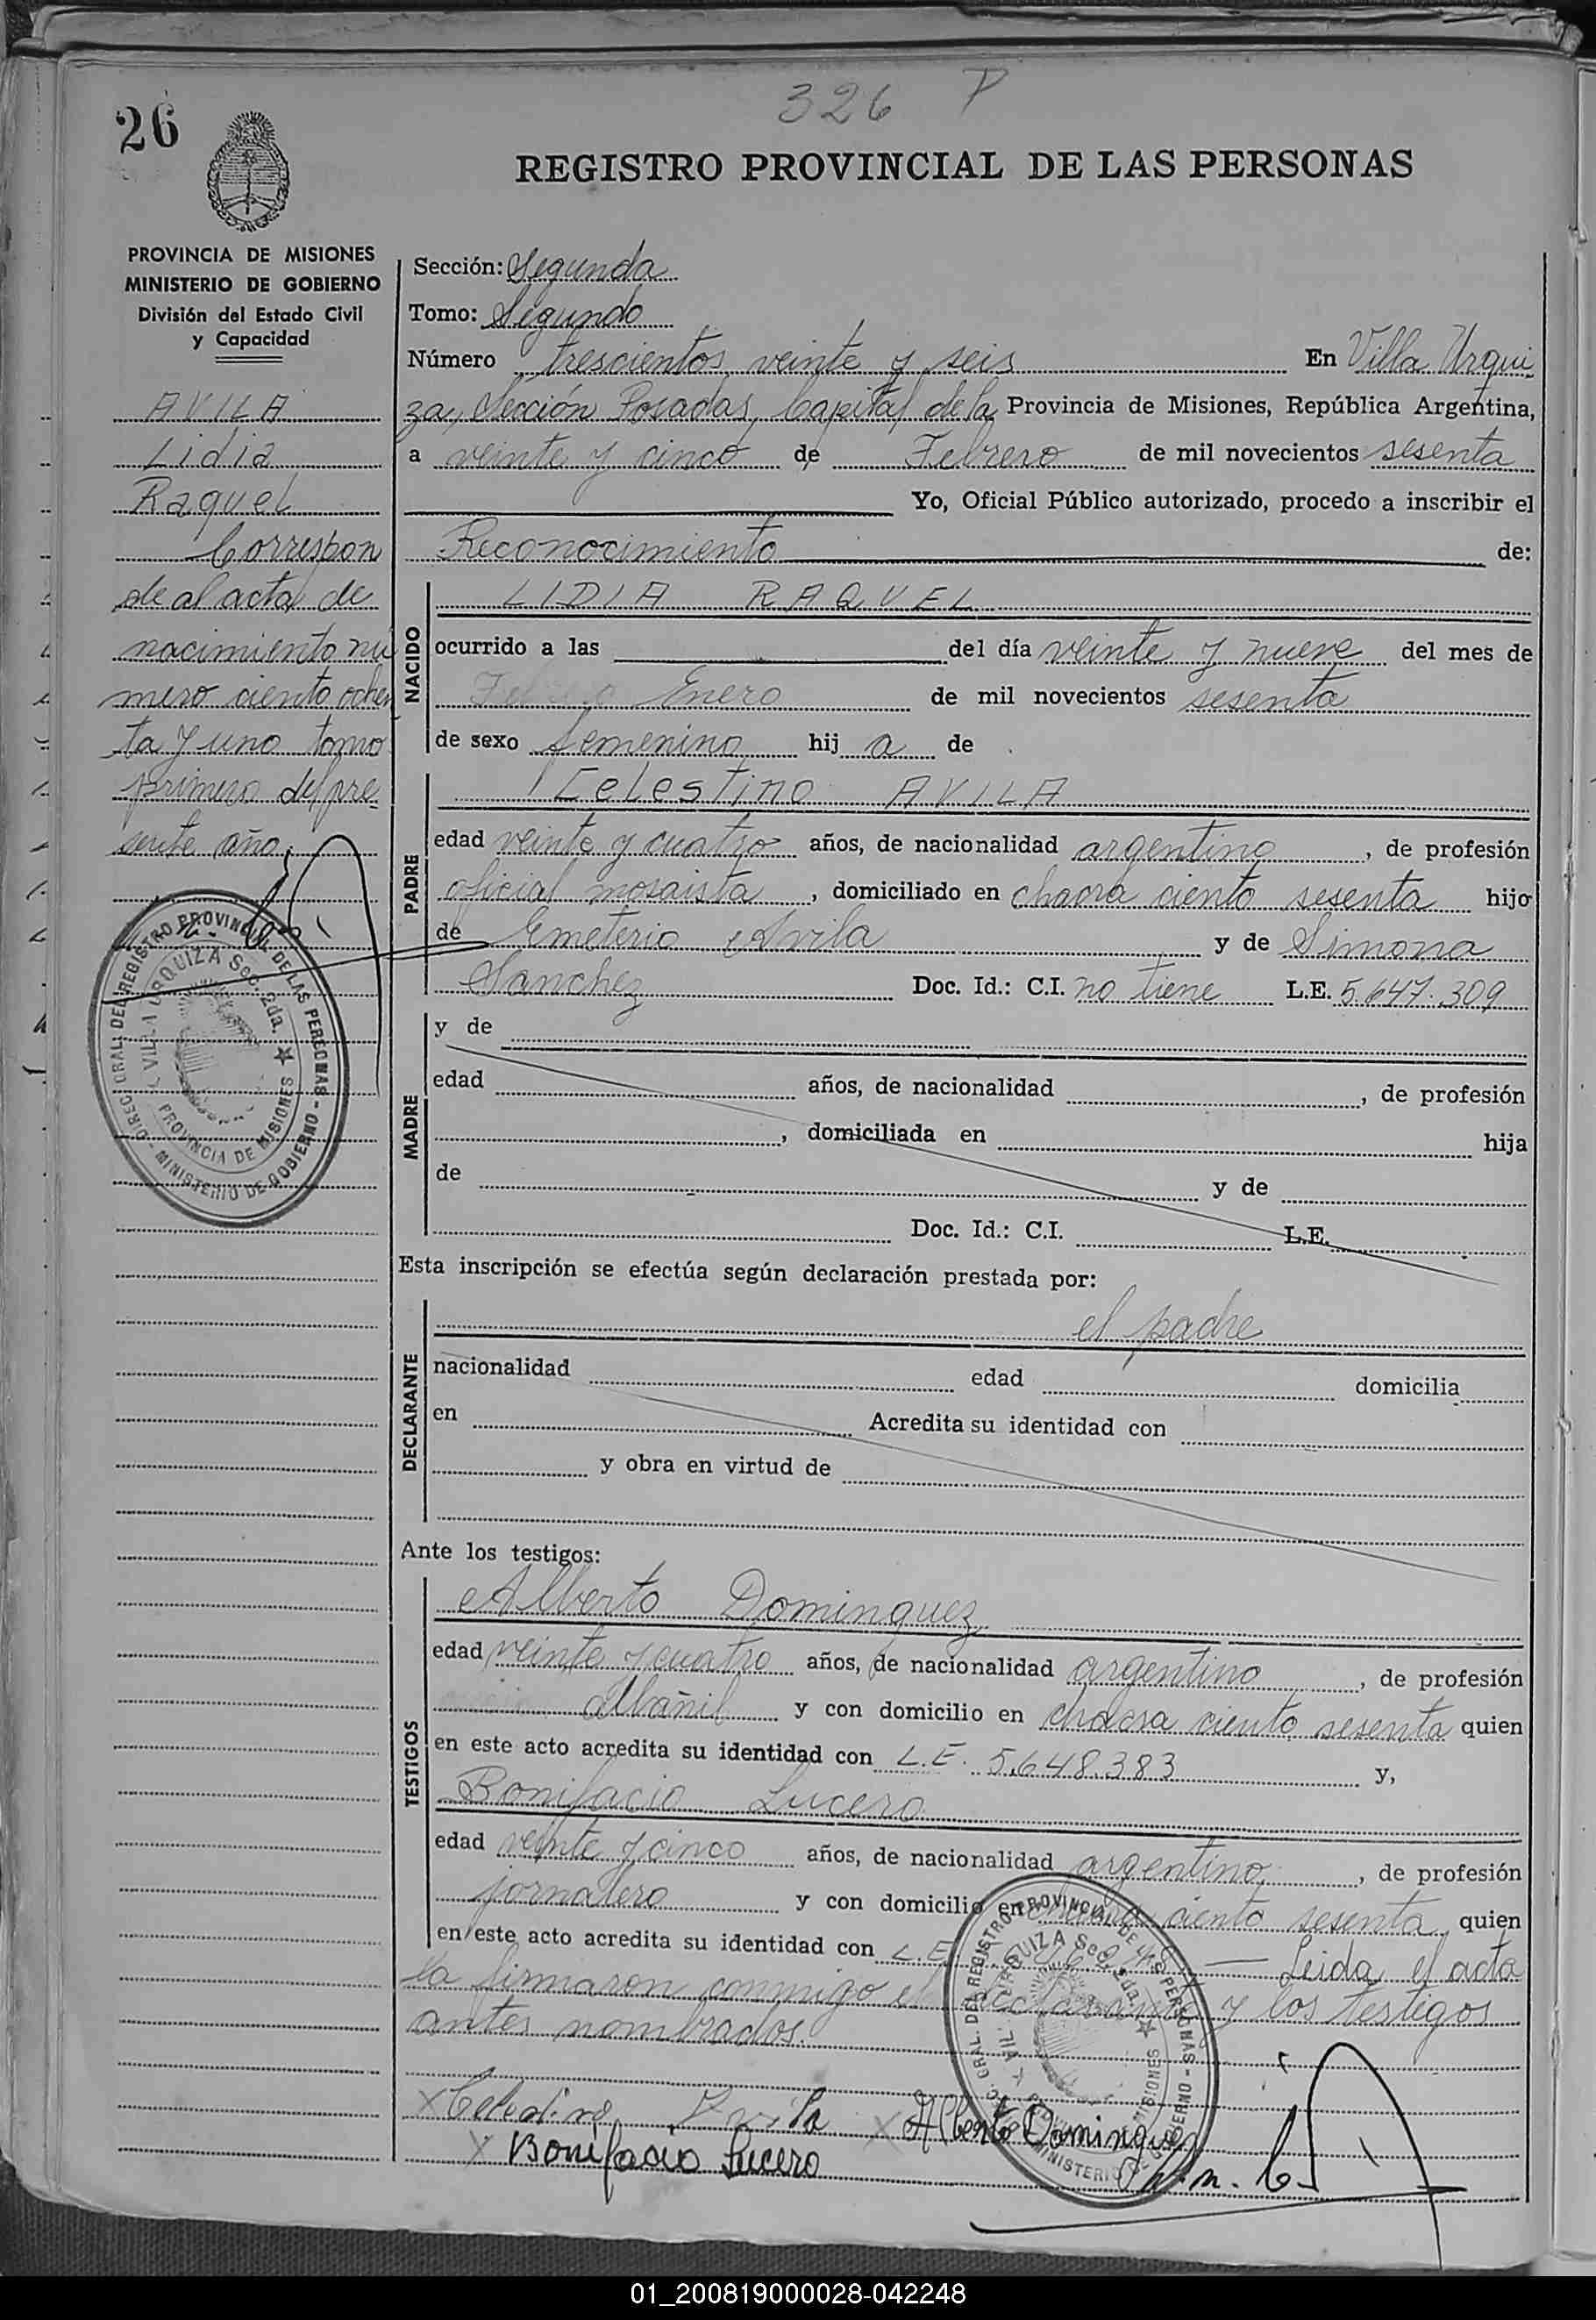 326 P
26
REGISTRO PROVINCIAL DE LAS PERSONAS
PROVINCIA DE MISIONES
MINISTERIO DE GOBIERNO
División del Estado Civil
y Capacidad
AVILA
Lidia
Raquel
Correspon
de al acta de
nacimiento nú
mero ciento ochen
ta y uno tomo
primero del pre
sente año.
DIREC. GRAL. DEL REGISTRO PROVINCIAL DE LAS PERSONAS - MINISTERIO DE GOBIERNO -
VILLA URQUIZA Sec. 2da.
PROVINCIA DE MISIONES
Sección: Segunda
Tomo: Segundo
Número trescientos veinte y seis En Villa Urqui
za, Sección Posadas, Capital de la Provincia de Misiones, República Argentina,
a veinte y cinco de Febrero de mil novecientos sesenta
Yo, Oficial Público autorizado, procedo a inscribir el
Reconocimiento de:
NACIDO
LIDIA RAQUEL
ocurrido a las del día veinte y nueve del mes de
Enero de mil novecientos sesenta
de sexo femenino hij a de
PADRE
Celestino AVILA
edad veinte y cuatro años, de nacionalidad argentino, de profesión
oficial mosaista, domiciliado en chacra ciento sesenta hijo
de Emeterio Avila y de Simona
Sanchez Doc. Id.: C.I. no tiene L.E. 5.647.309
MADRE
y de
edad años, de nacionalidad , de profesión
, domiciliada en hija
de y de
Doc. Id.: C.I. L.E.
Esta inscripción se efectúa según declaración prestada por:
DECLARANTE
el padre
nacionalidad edad domicilia
en Acredita su identidad con
y obra en virtud de
Ante los testigos:
TESTIGOS
Alberto Dominguez
edad veinte y cuatro años, de nacionalidad argentino, de profesión
albañil y con domicilio en chacra ciento sesenta quien
en este acto acredita su identidad con L.E. 5.648.383 y,
Bonifacio Lucero
edad veinte y cinco años, de nacionalidad argentino, de profesión
jornalero y con domicilio en chacra ciento sesenta, quien
en este acto acredita su identidad con L.E. Leida el acta
la firmaron conmigo el declarante y los testigos
antes nombrados.
X Celestino Avila X Alberto Dominguez
X Bonifacio Lucero
DIREC. GRAL. DEL REGISTRO PROVINCIAL DE LAS PERSONAS - MINISTERIO DE GOBIERNO -
VILLA URQUIZA Sec. 2da.
PROVINCIA DE MISIONES
01_200819000028-042248